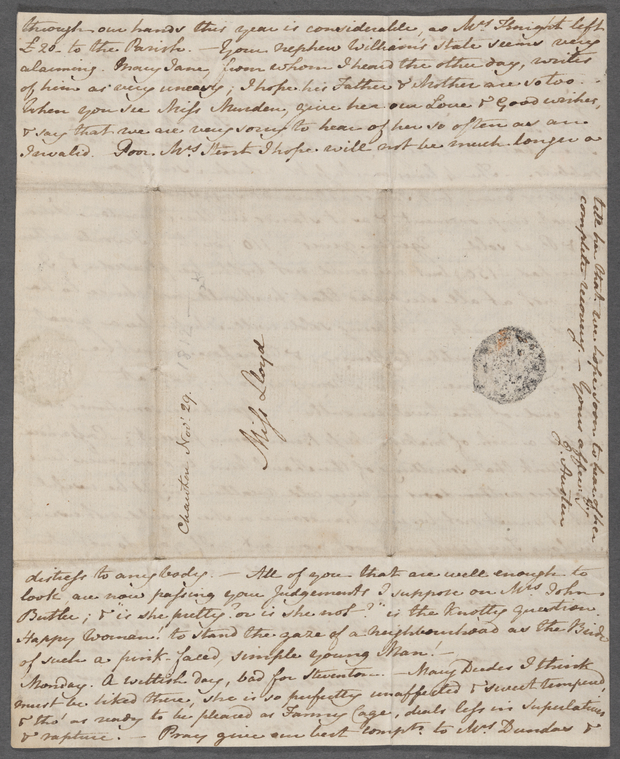 through our hands this year is considerable, as Mrs Knight left
£20. to the Parish. — Your nephew William's state seems very
alarming. Mary Jane, from whom I heard the other day, writes
of him as very uneasy; I hope his Father & Mother are so too. —
When you see Miss Murden, give her our Love & Good wishes,
& say that we are very sorry to hear of her so often as an
Invalid. Poor Mrs Stent I hope will not be much longer a
distress to anybody. — All of you that are well enough to
look are now passing your Judgements I suppose on Mrs John
Butler; & "is she pretty? or is she not?" is the knotty question.
Happy Woman! to stand the gaze of a neighbourhood as the Bride
of such a pink-faced, simple young Man! —
Monday. A wettish day, bad for Steventon. — Mary Deedes I think
must be liked there, she is so perfectly unaffected & sweet tempered,
& tho' as ready to be pleased as Fanny Cage, deals less in Superlatives
& rapture. — Pray give our best Compts to Mrs Dundas &
tell her that we hope soon to hear of her
complete recovery. — Yours affecly
J. Austen
Miss Lloyd
Chawton, Novr 29.